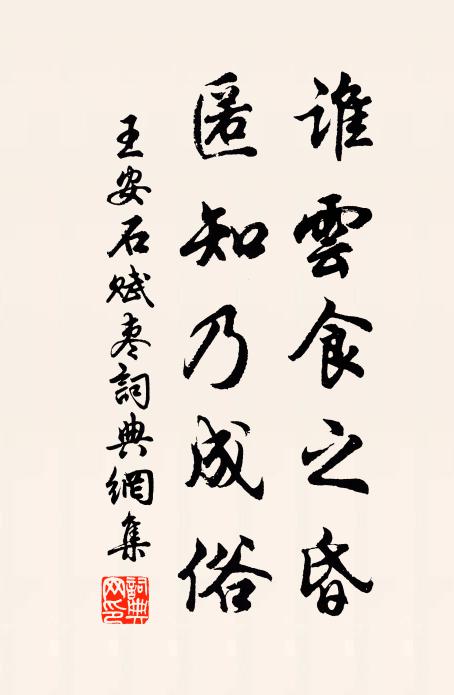 誰雲食之昏
匿知乃成俗
王安石賦棗詞典網集
詞典網印